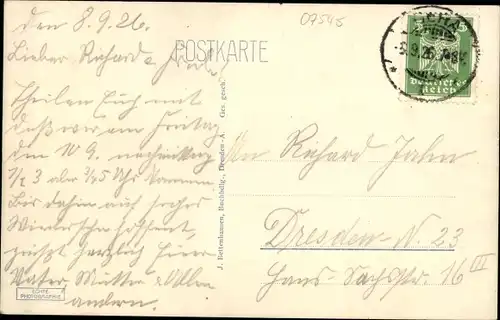 den 8.9.26.
07545
POSTKARTE
Lieber Richard
Theilen Euch mit
daß wir am Freitag
den 10 9. nachmittag
1/2 3 oder 3/4 5 Uhr kommen
Bis dahin auf
Wiedersehn hoffend,
grüßt herzlich Euer
Vater, Mutter
andern.
ECHTE
PHOTOGRAPHIE
J. Bettenhausen, Buchhdlg., Dresden-A. Ges. gesch.
-8.9.26
5
Deutsches
Reich
An Richard Jahn
Dresden-N. 23
Hans-Sachsstr. 16 III